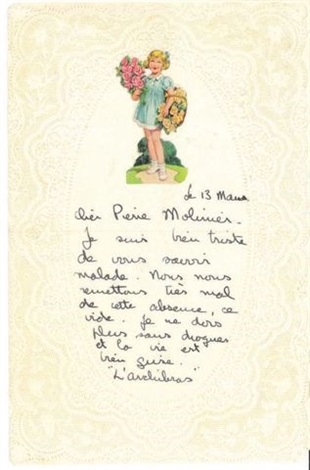 Le 13 Mars
Cher Pierre Molinier.
Je suis bien triste
de vous savoir
malade. Nous nous
remettons très mal
de cette absence, ce
vide. Je ne dors
plus sans drogues
et la vie est
bien grise.
"L'archibras"